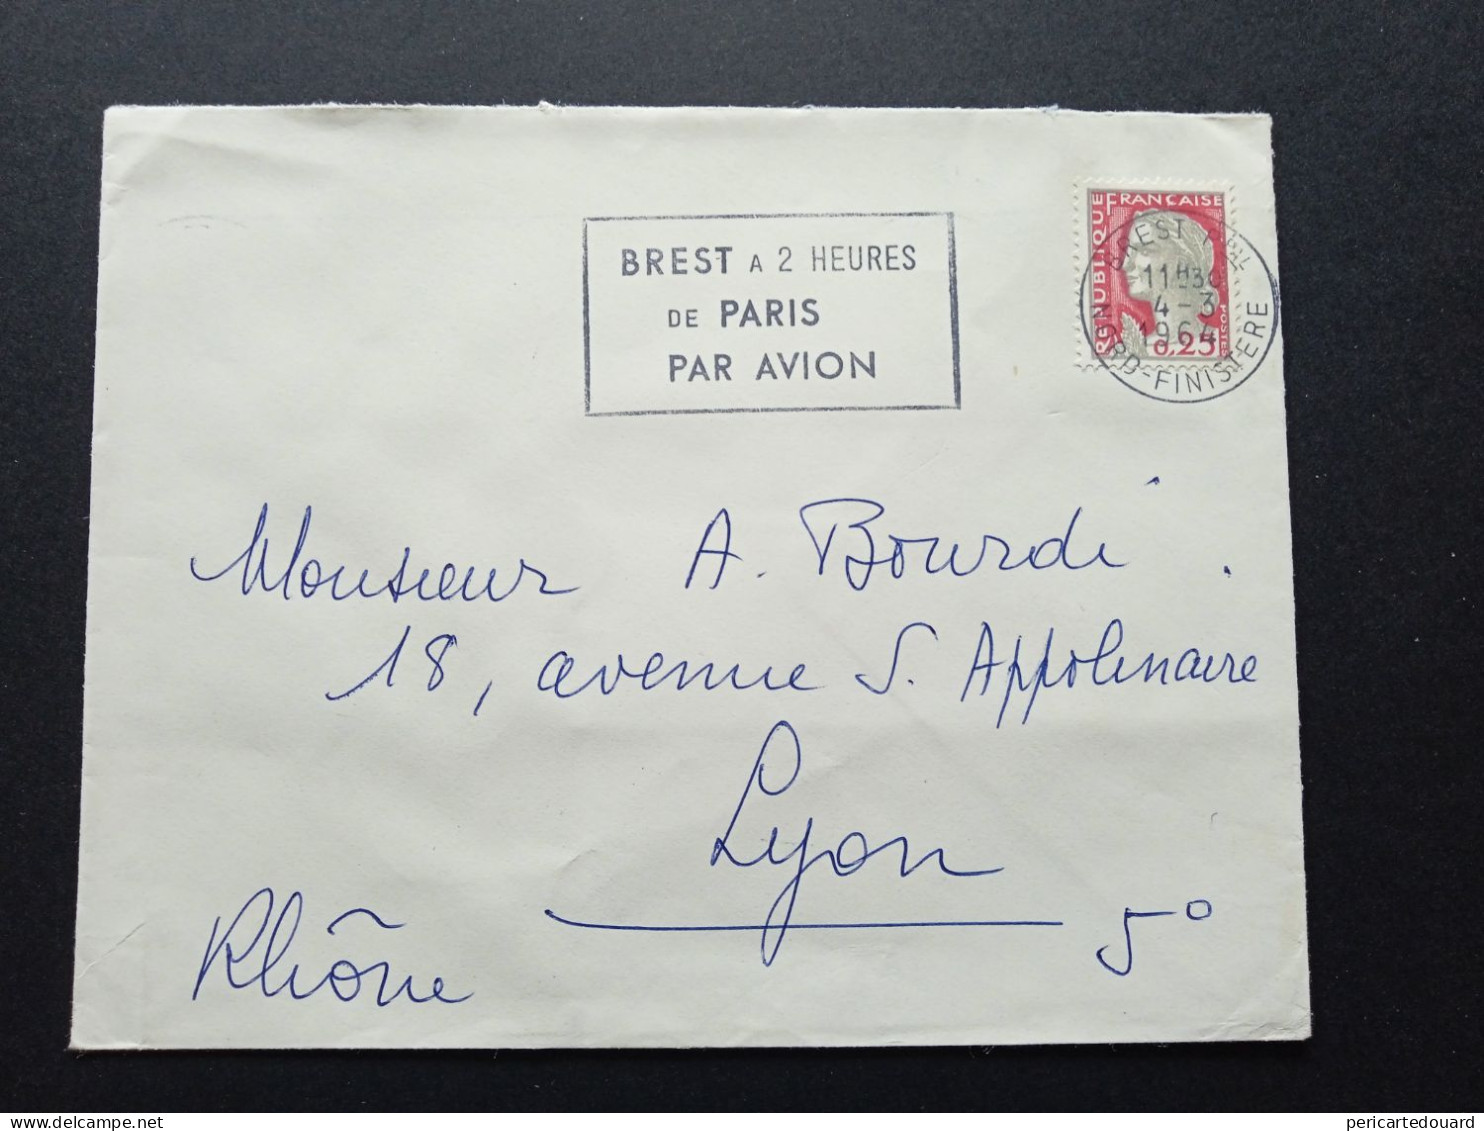 BREST A 2 HEURES
DE PARIS
PAR AVION
RÉPUBLIQUE FRANÇAISE
POSTES
0,25
BREST
11H30
4-3
1964
NORD-FINISTERE
Monsieur A. Bourdi.
18, avenue S. Appolinaire
Lyon
5°
Rhône
pericartedouard